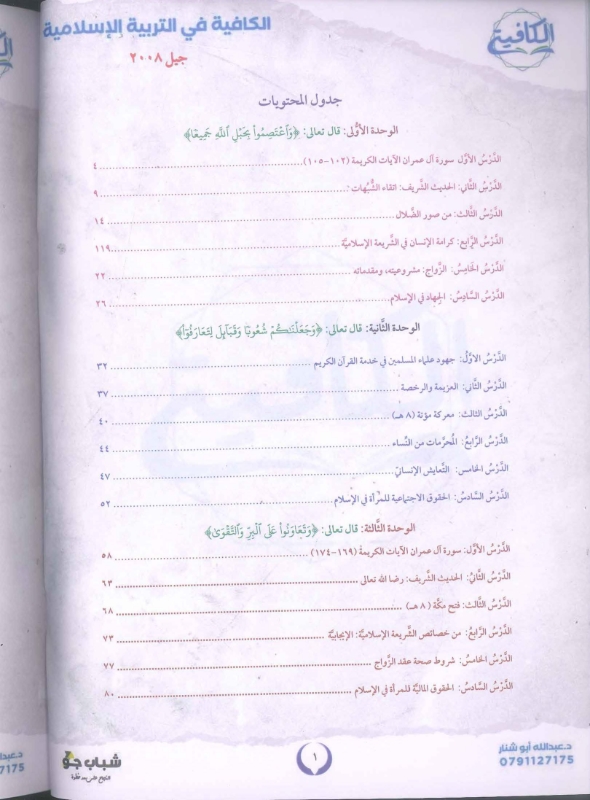 الكافية في التربية الإسلامية
الكافية
جيل ٢٠٠٨
جدول المحتويات
الوحدة الأولى: قال تعالى: ﴿وَاعْتَصِمُوا بِحَبْلِ اللَّهِ جَمِيعًا﴾
الدَّرْسُ الأوَّل سورة آل عمران الآيات الكريمة (١٠٢-١٠٥) .......... ٤
الدَّرْسُ الثاني: الحديث الشَّريف: اتقاء الشُّبُهات .......... ٩
الدَّرْسُ الثالث: من صور الضَّلال .......... ١٤
الدَّرْسُ الرَّابع: كرامة الإنسان في الشَّريعة الإسلاميَّة .......... ١١٩
الدَّرْسُ الخامسُ: الزَّواج: مشروعيته، ومقدماته .......... ٢٢
الدَّرْسُ السَّادِسُ: الجهاد في الإسلام .......... ٢٦
الوحدة الثَّانية: قال تعالى: ﴿وَجَعَلْنَاكُمْ شُعُوبًا وَقَبَائِلَ لِتَعَارَفُوا﴾
الدَّرْسُ الاوَّلُ: جهود علماء المسلمين في خدمة القرآن الكريم .......... ٣٢
الدَّرْسُ الثَّاني: العزيمة والرخصة .......... ٣٧
الدَّرْسُ الثالث: معركة مؤتة (٨ هـ) .......... ٤٠
الدَّرْسُ الرَّابِعُ: المُحرَّمات من النِّساء .......... ٤٤
الدَّرْسُ الخامس: التَّعايش الإنسانيّ .......... ٤٧
الدَّرْسُ السَّادِسُ: الحقوق الاجتماعية للمرأة في الإسلام .......... ٥٢
الوحدة الثَّالثة: قال تعالى: ﴿وَتَعَاوَنُوا عَلَى الْبِرِّ وَالتَّقْوَىٰ﴾
الدَّرْسُ الأوَّل: سورة آل عمران الآيات الكريمة (١٦٩-١٧٤) .......... ٥٨
الدَّرْسُ الثَّانِيُّ: الحديث الشَّريف: رضا الله تعالى .......... ٦٣
الدَّرْسُ الثالث: فتح مكَّة (٨ هـ) .......... ٦٨
الدَّرْسُ الرَّابِعُ: من خصائص الشَّريعة الإسلاميَّة: الإيجابيَّة .......... ٧٣
الدَّرْسُ الخامسُ: شروط صحة عقد الزَّواج .......... ٧٧
الدَّرْسُ السَّادِسُ: الحقوق الماليَّة للمرأة في الإسلام .......... ٨٠
د.عبدالله أبو شنار
0791127175
١
شباب جو